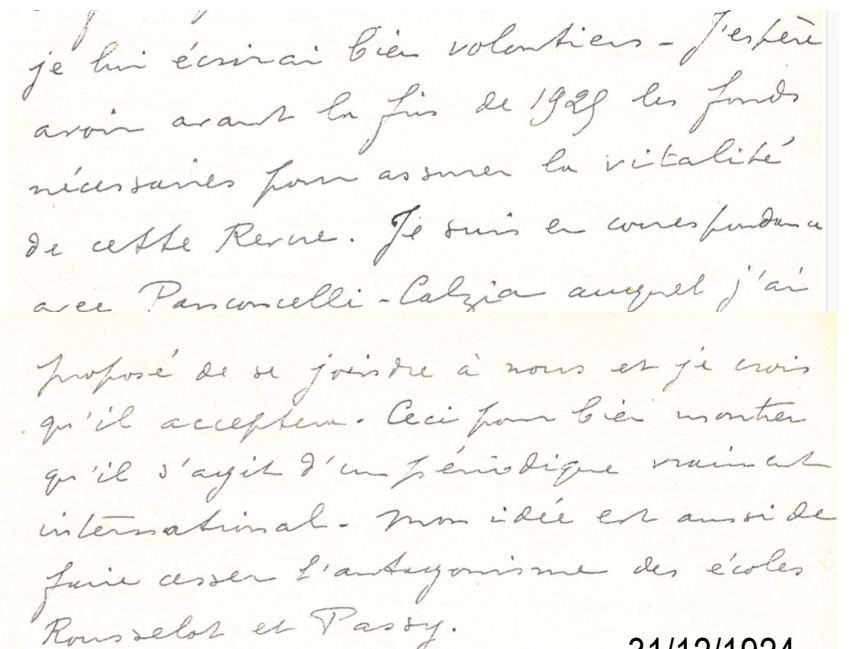 je lui écrirai bien volontiers - J'espère
avoir avant la fin de 1925 les fonds
nécessaires pour assurer la vitalité
de cette Revue. Je suis en correspondance
avec Panconcelli-Calzia auquel j'ai
proposé de se joindre à nous et je crois
qu'il acceptera. Ceci pour bien montrer
qu'il s'agit d'un périodique vraiment
international - Mon idée est aussi de
faire cesser l'antagonisme des écoles
Rousselot et Passy.
31/12/1924